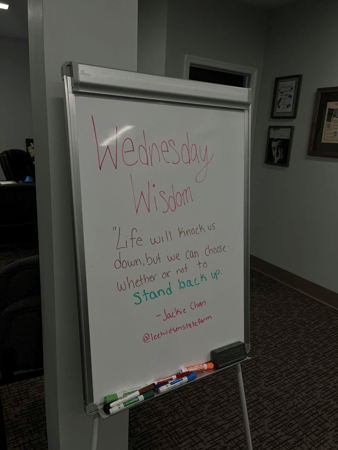 Wednesday
Wisdom
"Life will knock us
down, but we can choose
whether or not to
stand back up.
-Jackie Chan